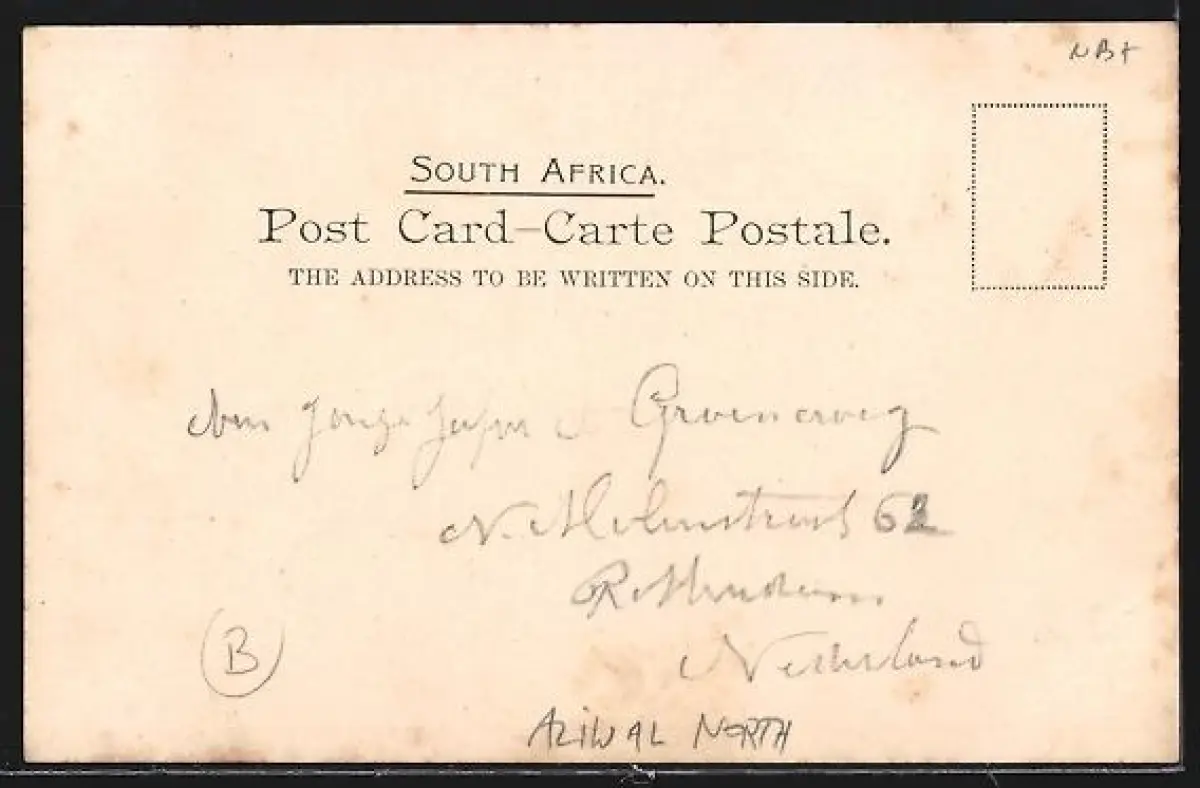 NB+
SOUTH AFRICA.
Post Card–Carte Postale.
THE ADDRESS TO BE WRITTEN ON THIS SIDE.
Groeneweg
N. Molenstraat 62
Rotterdam
Nederland
B
ALIWAL NORTH